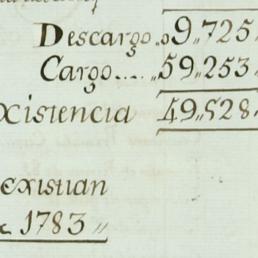 Descargo..09,,725,,
Cargo....,,59,,253,,
xistencia 49,,528,,
existian
1783,,